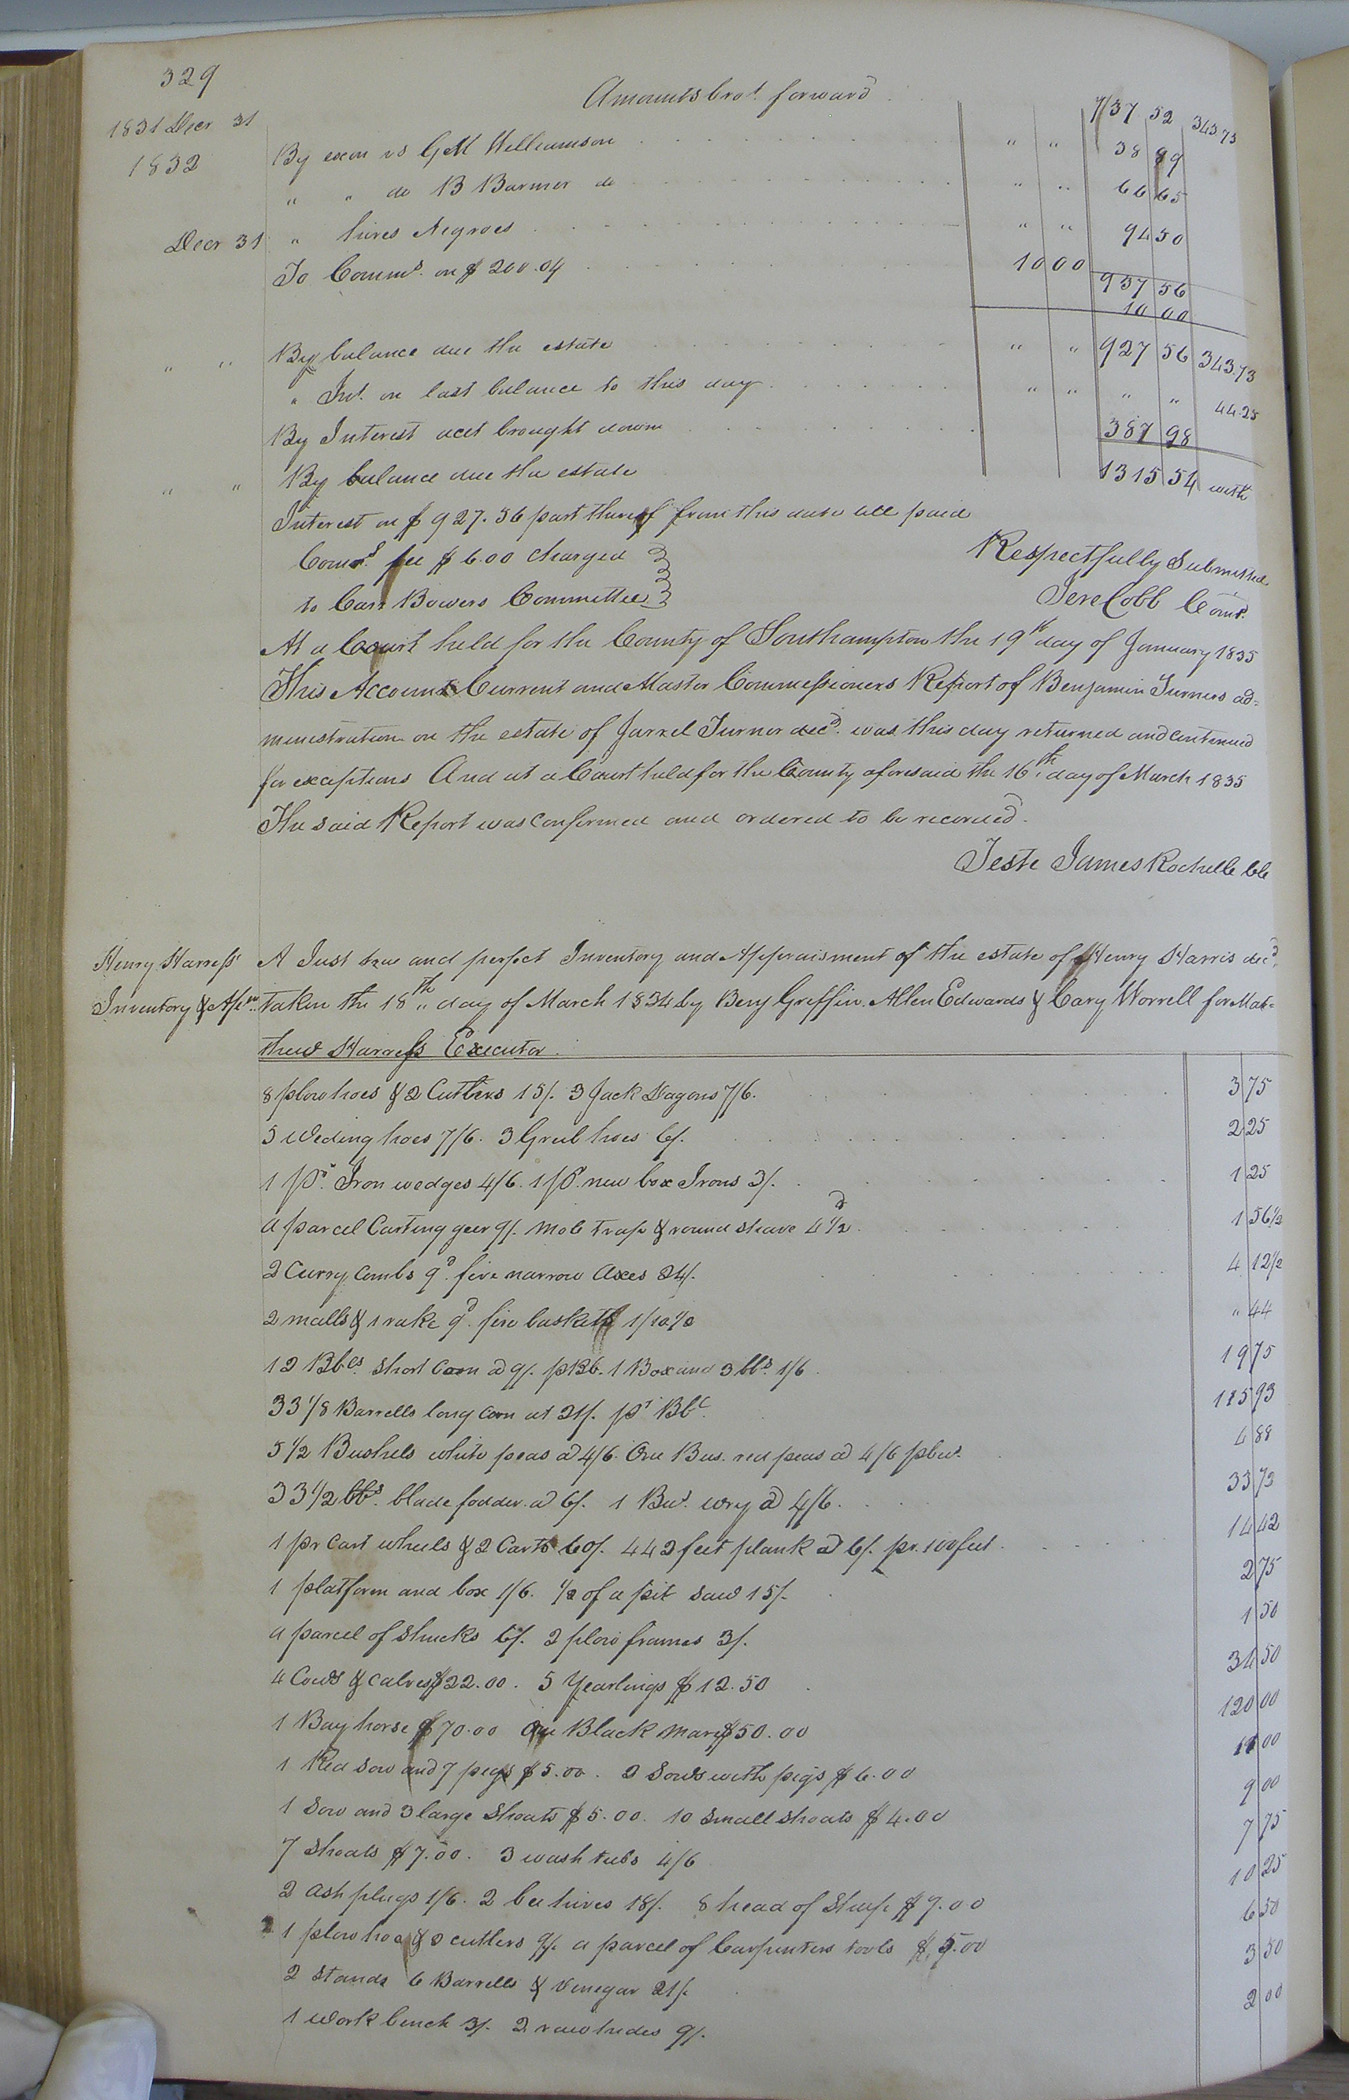 329
Amounts brot. forward 737 52 343 73
1831 Decr 31
1832 By exon vs G M Williamson " " 38 89
" " do B Barmer do " " 66 65
Decr 31 " hires Negroes " " 94 50
To Comms. on $ 200.04 10 00
937 56
10 00
" " By balance due the estate " " 927 56 343.73
" Int. on last balance to this day " " " " 44.25
By Interest acct brought down 387 98
" " By balance due the estate 1315 54 with
Interest on $ 927.56 part thereof from this date all paid
Comrs. fee $ 6.00 charged
to Carr Bowers Committee
Respectfully Submitted
Jere Cobb Comr.
At a Court held for the County of Southampton the 19th day of January 1835
This Account Current and Master Commissioners Report of Benjamin Turners ad=
ministration on the estate of Jarrel Turner decd. was this day returned and continued
for exceptions And at a Court held for the County aforesaid the 16th. day of March 1835
The said Report was confirmed and ordered to be recorded.
Teste James Rochelle Clk
Henry Harress
Inventory & Appt.
A Just true and perfect Inventory and Appraisment of the estate of Henry Harris decd.
taken the 18th day of March 1834 by Benj Griffin Allen Edwards & Cary Worrell for Mat=
thew Harress Executor.
8 plow hoes & 2 Cutlers 15/. 3 Jack Dagons 7/6. 3 75
5 Weding hoes 7/6. 3 Grub hoes 6/. 2 25
1 Pr. Iron wedges 4/6. 1 pr. new box Irons 3/. 1 25
a parcel Carting geer 9/. mole trap & round shave 4 1/2d. 1 56 1/2
2 Curry Combs 9d. five narrow Axes 24/. 4 12 1/2
2 malls & 1 rake 9d. five baskets 1/10 1/2 " 44
12 Bbls. short Corn @ 9/. p Bb. 1 Box and 3 bbs. 1/6. 19 75
33 1/8 Barrells long corn at 21/. pr Bbl. 115 93
5 1/2 Bushels white peas @ 4/6. One Bus. red peas @ 4/6 p bus. 4 88
33 1/2 bbs. blade fodder @ 6/. 1 Bus. wry @ 4/6. 33 73
1 pr Cart wheels & 2 Carts 60/. 442 feet plank @ 6/. pr. 100 feet. 14 42
1 platform and box 1/6. 1/2 of a pit saw 15/. 2 75
a parcel of Shucks 6/. 2 plow frames 3/. 1 50
4 Cows & calves $22.00. 5 Yearlings $12.50 34 50
1 Bay horse $70.00 One Black mare $50.00 120 00
1 Red Sow and 7 pigs $5.00. 2 Sows with pigs $6.00 11 00
1 Sow and 3 large Shoats $5.00. 10 small shoats $4.00 9 00
7 Shoats $7.00. 3 wash tubs 4/6 7 75
2 Ash plugs 1/6. 2 bee hives 18/. 8 head of Sheep $7.00 10 25
1 plow hoe & 2 cutlers 9/. a parcel of Carpenters tools $5.00 6 50
2 Stands 6 Barrells & Vinegar 21/. 3 50
1 Work bench 3/. 2 raw hides 9/. 2 00